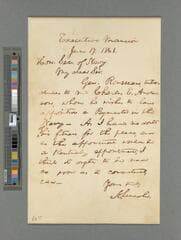 Executive Mansion
June 17, 1861.
Hon. Sec. of Navy
My dear Sir.
Gen. Rousseau intro-
duces to me Charles C. Ander
son, whom he wishes to have
appointed a Paymaster in the
Navy. As I have no doubt
his fitness for the place, and
as the appointment would be
a Kentucky appointment I
think it ought to be made
as soon as it consistently
can.
Yours truly
A. Lincoln